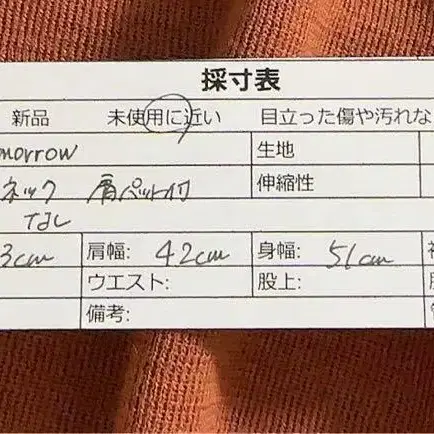 採寸表
新品 未使用に近い 目立った傷や汚れな
morrow 生地
ネック 肩パット付 伸縮性
なし
3cm 肩幅: 42cm 身幅: 51cm
ウエスト: 股上:
備考: